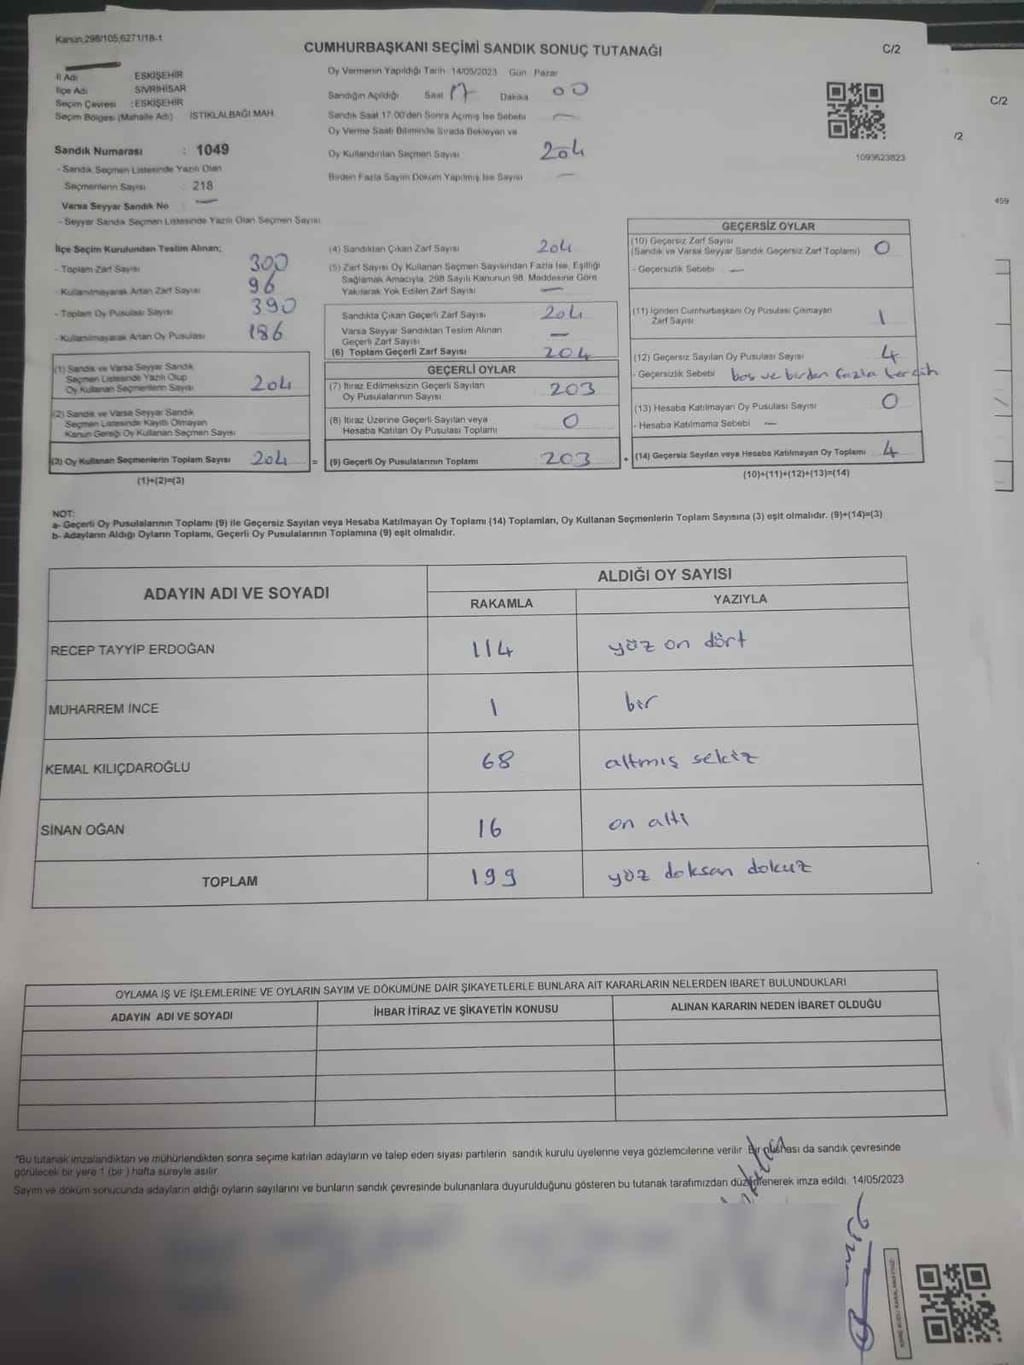 Kanun:298/105,6271/18-1
CUMHURBAŞKANI SEÇİMİ SANDIK SONUÇ TUTANAĞI
C/2
İl Adı : ESKİŞEHİR
İlçe Adı SİVRİHİSAR
Seçim Çevresi : ESKİŞEHİR
Seçim Bölgesi (Mahalle Adı) İSTİKLALBAĞI MAH.
Sandık Numarası : 1049
- Sandık Seçmen Listesinde Yazılı Olan
Seçmenlerin Sayısı : 218
Varsa Seyyar Sandık No —
- Seyyar Sandık Seçmen Listesinde Yazılı Olan Seçmen Sayısı
Oy Vermenin Yapıldığı Tarih 14/05/2023 Gün Pazar
Sandığın Açıldığı Saat 17 Dakika 00
Sandık Saat 17.00'den Sonra Açılmış İse Sebebi —
Oy Verme Saati Bitiminde Sırada Bekleyen ve
Oy Kullandırılan Seçmen Sayısı 204
Birden Fazla Sayım Döküm Yapılmış İse Sayısı —
1093623823
C/2
/2
459
İlçe Seçim Kurulundan Teslim Alınan;
- Toplam Zarf Sayısı 300
- Kullanılmayarak Artan Zarf Sayısı 96
- Toplam Oy Pusulası Sayısı 390
- Kullanılmayarak Artan Oy Pusulası 186
(1) Sandık ve Varsa Seyyar Sandık
Seçmen Listesinde Yazılı Olup
Oy Kullanan Seçmenlerin Sayısı 204
(2) Sandık ve Varsa Seyyar Sandık
Seçmen Listesinde Kayıtlı Olmayan
Kanun Gereği Oy Kullanan Seçmen Sayısı
(3) Oy Kullanan Seçmenlerin Toplam Sayısı 204 =
(1)+(2)=(3)
(4) Sandıktan Çıkan Zarf Sayısı 204
(5) Zarf Sayısı Oy Kullanan Seçmen Sayısından Fazla İse, Eşitliği
Sağlamak Amacıyla, 298 Sayılı Kanunun 98. Maddesine Göre
Yakılarak Yok Edilen Zarf Sayısı —
Sandıkta Çıkan Geçerli Zarf Sayısı 204
Varsa Seyyar Sandıktan Teslim Alınan
Geçerli Zarf Sayısı —
(6) Toplam Geçerli Zarf Sayısı 204
GEÇERLİ OYLAR
(7) İtiraz Edilmeksizin Geçerli Sayılan
Oy Pusulalarının Sayısı 203
(8) İtiraz Üzerine Geçerli Sayılan veya
Hesaba Katılan Oy Pusulası Toplamı 0
(9) Geçerli Oy Pusulalarının Toplamı 203 +
GEÇERSİZ OYLAR
(10) Geçersiz Zarf Sayısı
(Sandık ve Varsa Seyyar Sandık Geçersiz Zarf Toplamı) 0
- Geçersizlik Sebebi —
(11) İçinden Cumhurbaşkanı Oy Pusulası Çıkmayan
Zarf Sayısı 1
(12) Geçersiz Sayılan Oy Pusulası Sayısı 4
- Geçersizlik Sebebi boş ve birden fazla tercih
(13) Hesaba Katılmayan Oy Pusulası Sayısı 0
- Hesaba Katılmama Sebebi —
(14) Geçersiz Sayılan veya Hesaba Katılmayan Oy Toplamı 4
(10)+(11)+(12)+(13)=(14)
NOT:
a- Geçerli Oy Pusulalarının Toplamı (9) ile Geçersiz Sayılan veya Hesaba Katılmayan Oy Toplamı (14) Toplamları, Oy Kullanan Seçmenlerin Toplam Sayısına (3) eşit olmalıdır. (9)+(14)=(3)
b- Adayların Aldığı Oyların Toplamı, Geçerli Oy Pusulalarının Toplamına (9) eşit olmalıdır.
ADAYIN ADI VE SOYADI
ALDIĞI OY SAYISI
RAKAMLA YAZIYLA
RECEP TAYYİP ERDOĞAN 114 yüz on dört
MUHARREM İNCE 1 bir
KEMAL KILIÇDAROĞLU 68 altmış sekiz
SİNAN OĞAN 16 on altı
TOPLAM 199 yüz doksan dokuz
OYLAMA İŞ VE İŞLEMLERİNE VE OYLARIN SAYIM VE DÖKÜMÜNE DAİR ŞİKAYETLERLE BUNLARA AİT KARARLARIN NELERDEN İBARET BULUNDUKLARI
ADAYIN ADI VE SOYADI İHBAR İTİRAZ VE ŞİKAYETİN KONUSU ALINAN KARARIN NEDEN İBARET OLDUĞU
"Bu tutanak imzalandıktan ve mühürlendikten sonra seçime katılan adayların ve talep eden siyasi partilerin sandık kurulu üyelerine veya gözlemcilerine verilir. Bir nüshası da sandık çevresinde
görülecek bir yere 1 (bir ) hafta süreyle asılır.
Sayım ve döküm sonucunda adayların aldığı oyların sayılarını ve bunların sandık çevresinde bulunanlara duyurulduğunu gösteren bu tutanak tarafımızdan düzenlenerek imza edildi. 14/05/2023